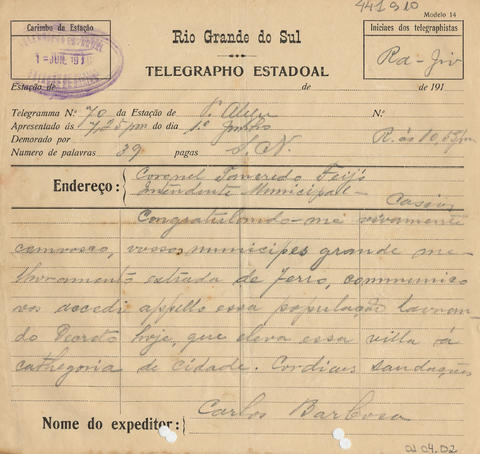 441310
Modelo 14
Carimbo da Estação
Rio Grande do Sul
Iniciaes dos telegraphistas
1-JUN. 1910
TELEGRAPHO ESTADOAL
Rd - Jiv
Estação de de de 191
Telegramma N.º 70 da Estação de P. Alegre N.º
Apresentado ás 7,25 pm do dia 1.º Junho
Demorado por R. ás 10,55 pm
Numero de palavras 39 pagas S. N.
Endereço: Coronel Tancredo Feijó
Intendente Municipal -
Caxias
Congratulando-me vivamente
comvosco, vossos municipes grande me-
lhoramento estrada de ferro, communico
vos accedi appello essa população lavran-
do Decreto hoje, que eleva essa villa á
cathegoria de cidade. Cordiaes saudações
Carlos Barbosa
Nome do expeditor:
01.04.02